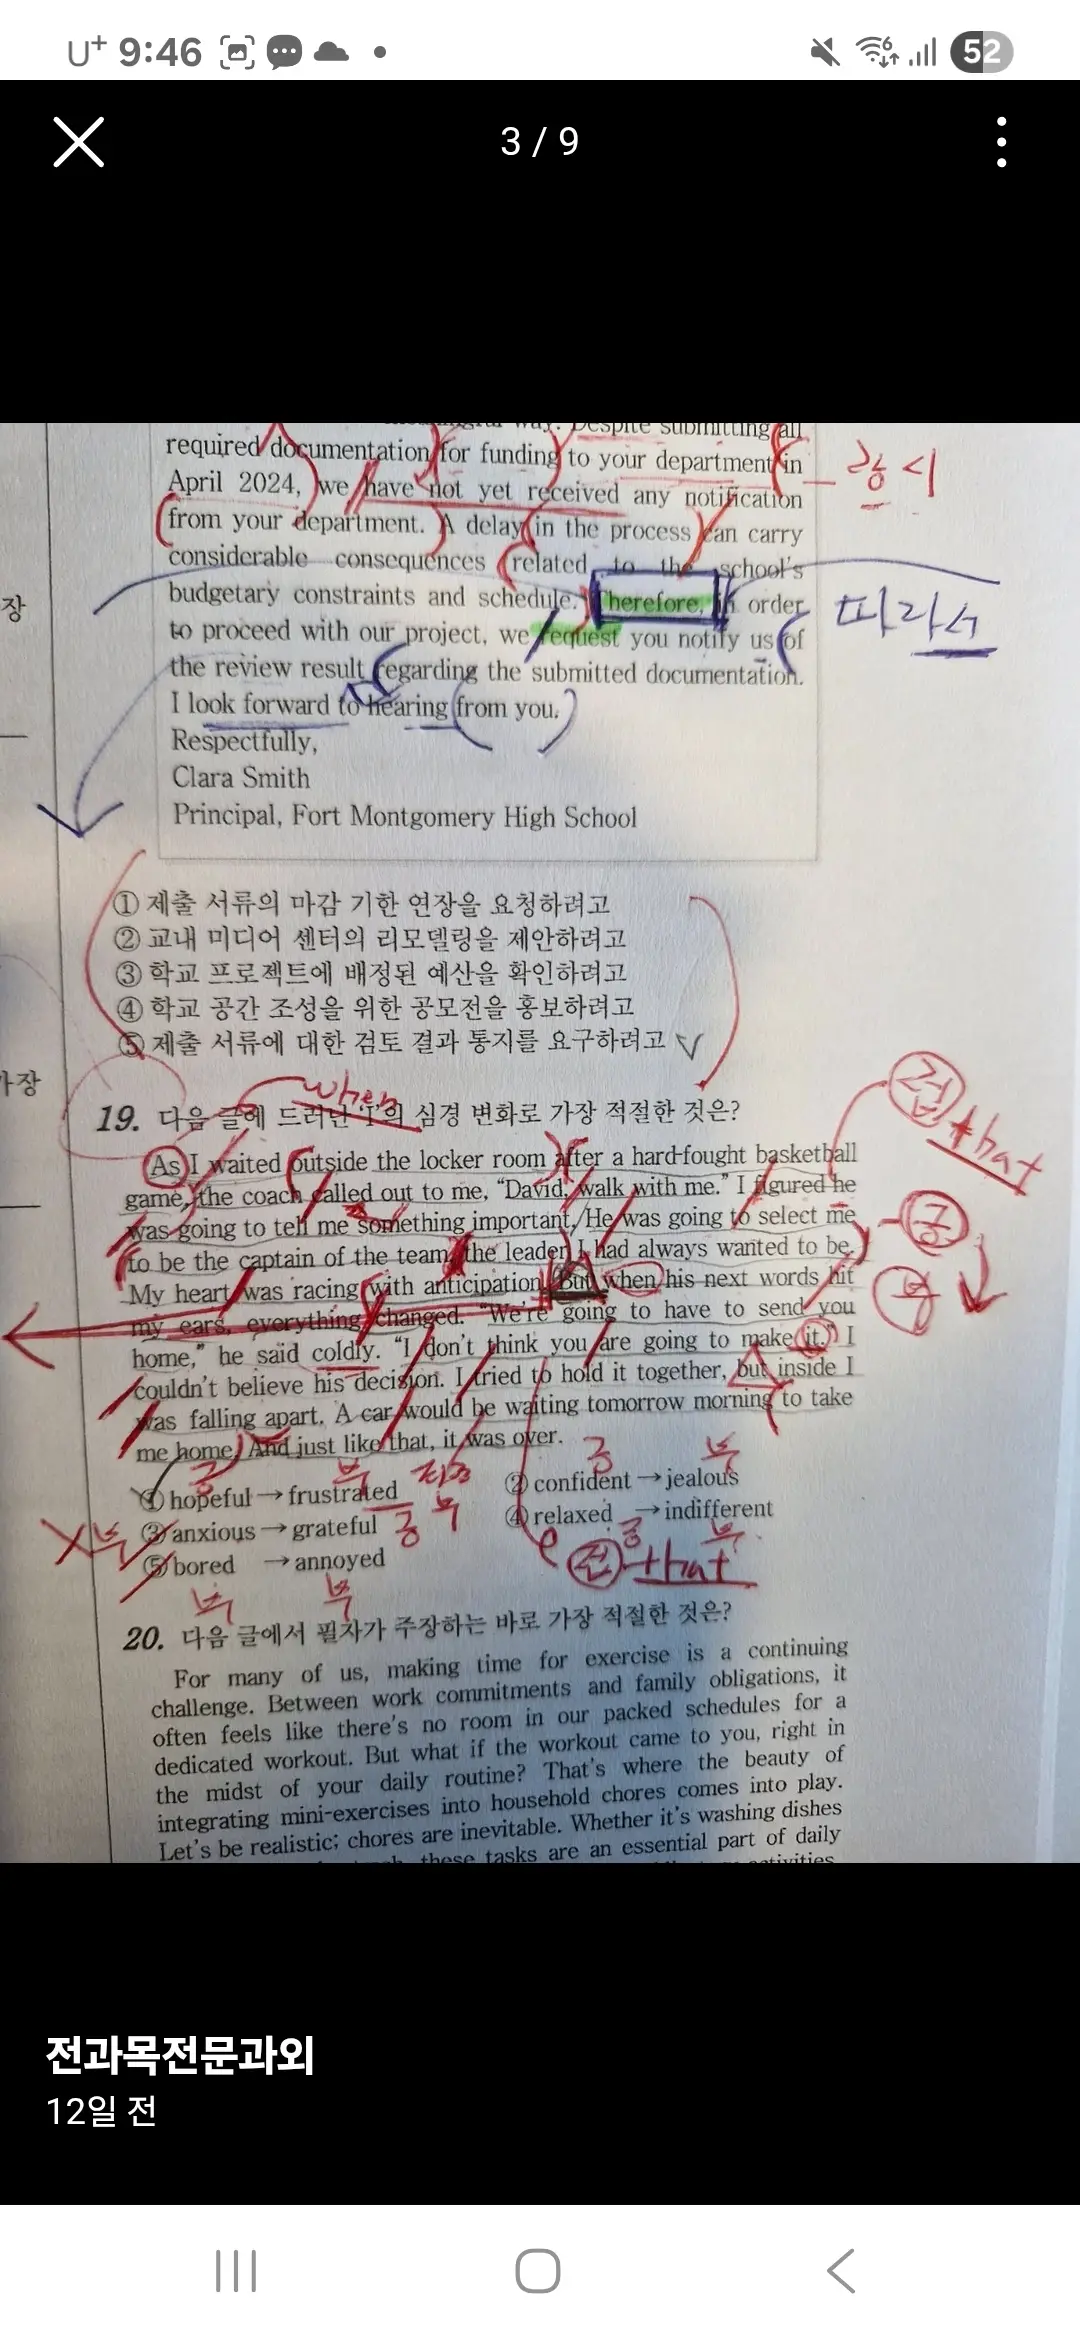 U+ 9:46 52
3 / 9
way. Despite submitting all
required documentation for funding to your department in
April 2024, we have not yet received any notification
from your department. A delay in the process can carry
considerable consequences related to the school's
budgetary constraints and schedule. Therefore, in order
to proceed with our project, we request you notify us of
the review result regarding the submitted documentation.
I look forward to hearing from you.
Respectfully,
Clara Smith
Principal, Fort Montgomery High School
따라서
장
① 제출 서류의 마감 기한 연장을 요청하려고
② 교내 미디어 센터의 리모델링을 제안하려고
③ 학교 프로젝트에 배정된 예산을 확인하려고
④ 학교 공간 조성을 위한 공모전을 홍보하려고
⑤ 제출 서류에 대한 검토 결과 통지를 요구하려고
가장
when
19. 다음 글에 드러난 'I'의 심경 변화로 가장 적절한 것은?
접 that
As I waited outside the locker room after a hard-fought basketball
game, the coach called out to me, “David, walk with me.” I figured he
was going to tell me something important. He was going to select me
to be the captain of the team, the leader I had always wanted to be.
My heart was racing with anticipation. But when his next words hit
my ears, everything changed. “We're going to have to send you
home,” he said coldly. “I don't think you are going to make it.” I
couldn't believe his decision. I tried to hold it together, but inside I
was falling apart. A car would be waiting tomorrow morning to take
me home. And just like that, it was over.
긍
부
① hopeful → frustrated
② confident → jealous
③ anxious → grateful
④ relaxed → indifferent
⑤ bored → annoyed
긍 부
부 긍
긍 부
부 부
접 that
20. 다음 글에서 필자가 주장하는 바로 가장 적절한 것은?
For many of us, making time for exercise is a continuing
challenge. Between work commitments and family obligations, it
often feels like there's no room in our packed schedules for a
dedicated workout. But what if the workout came to you, right in
the midst of your daily routine? That's where the beauty of
integrating mini-exercises into household chores comes into play.
Let's be realistic; chores are inevitable. Whether it's washing dishes
these tasks are an essential part of daily
전과목전문과외
12일 전